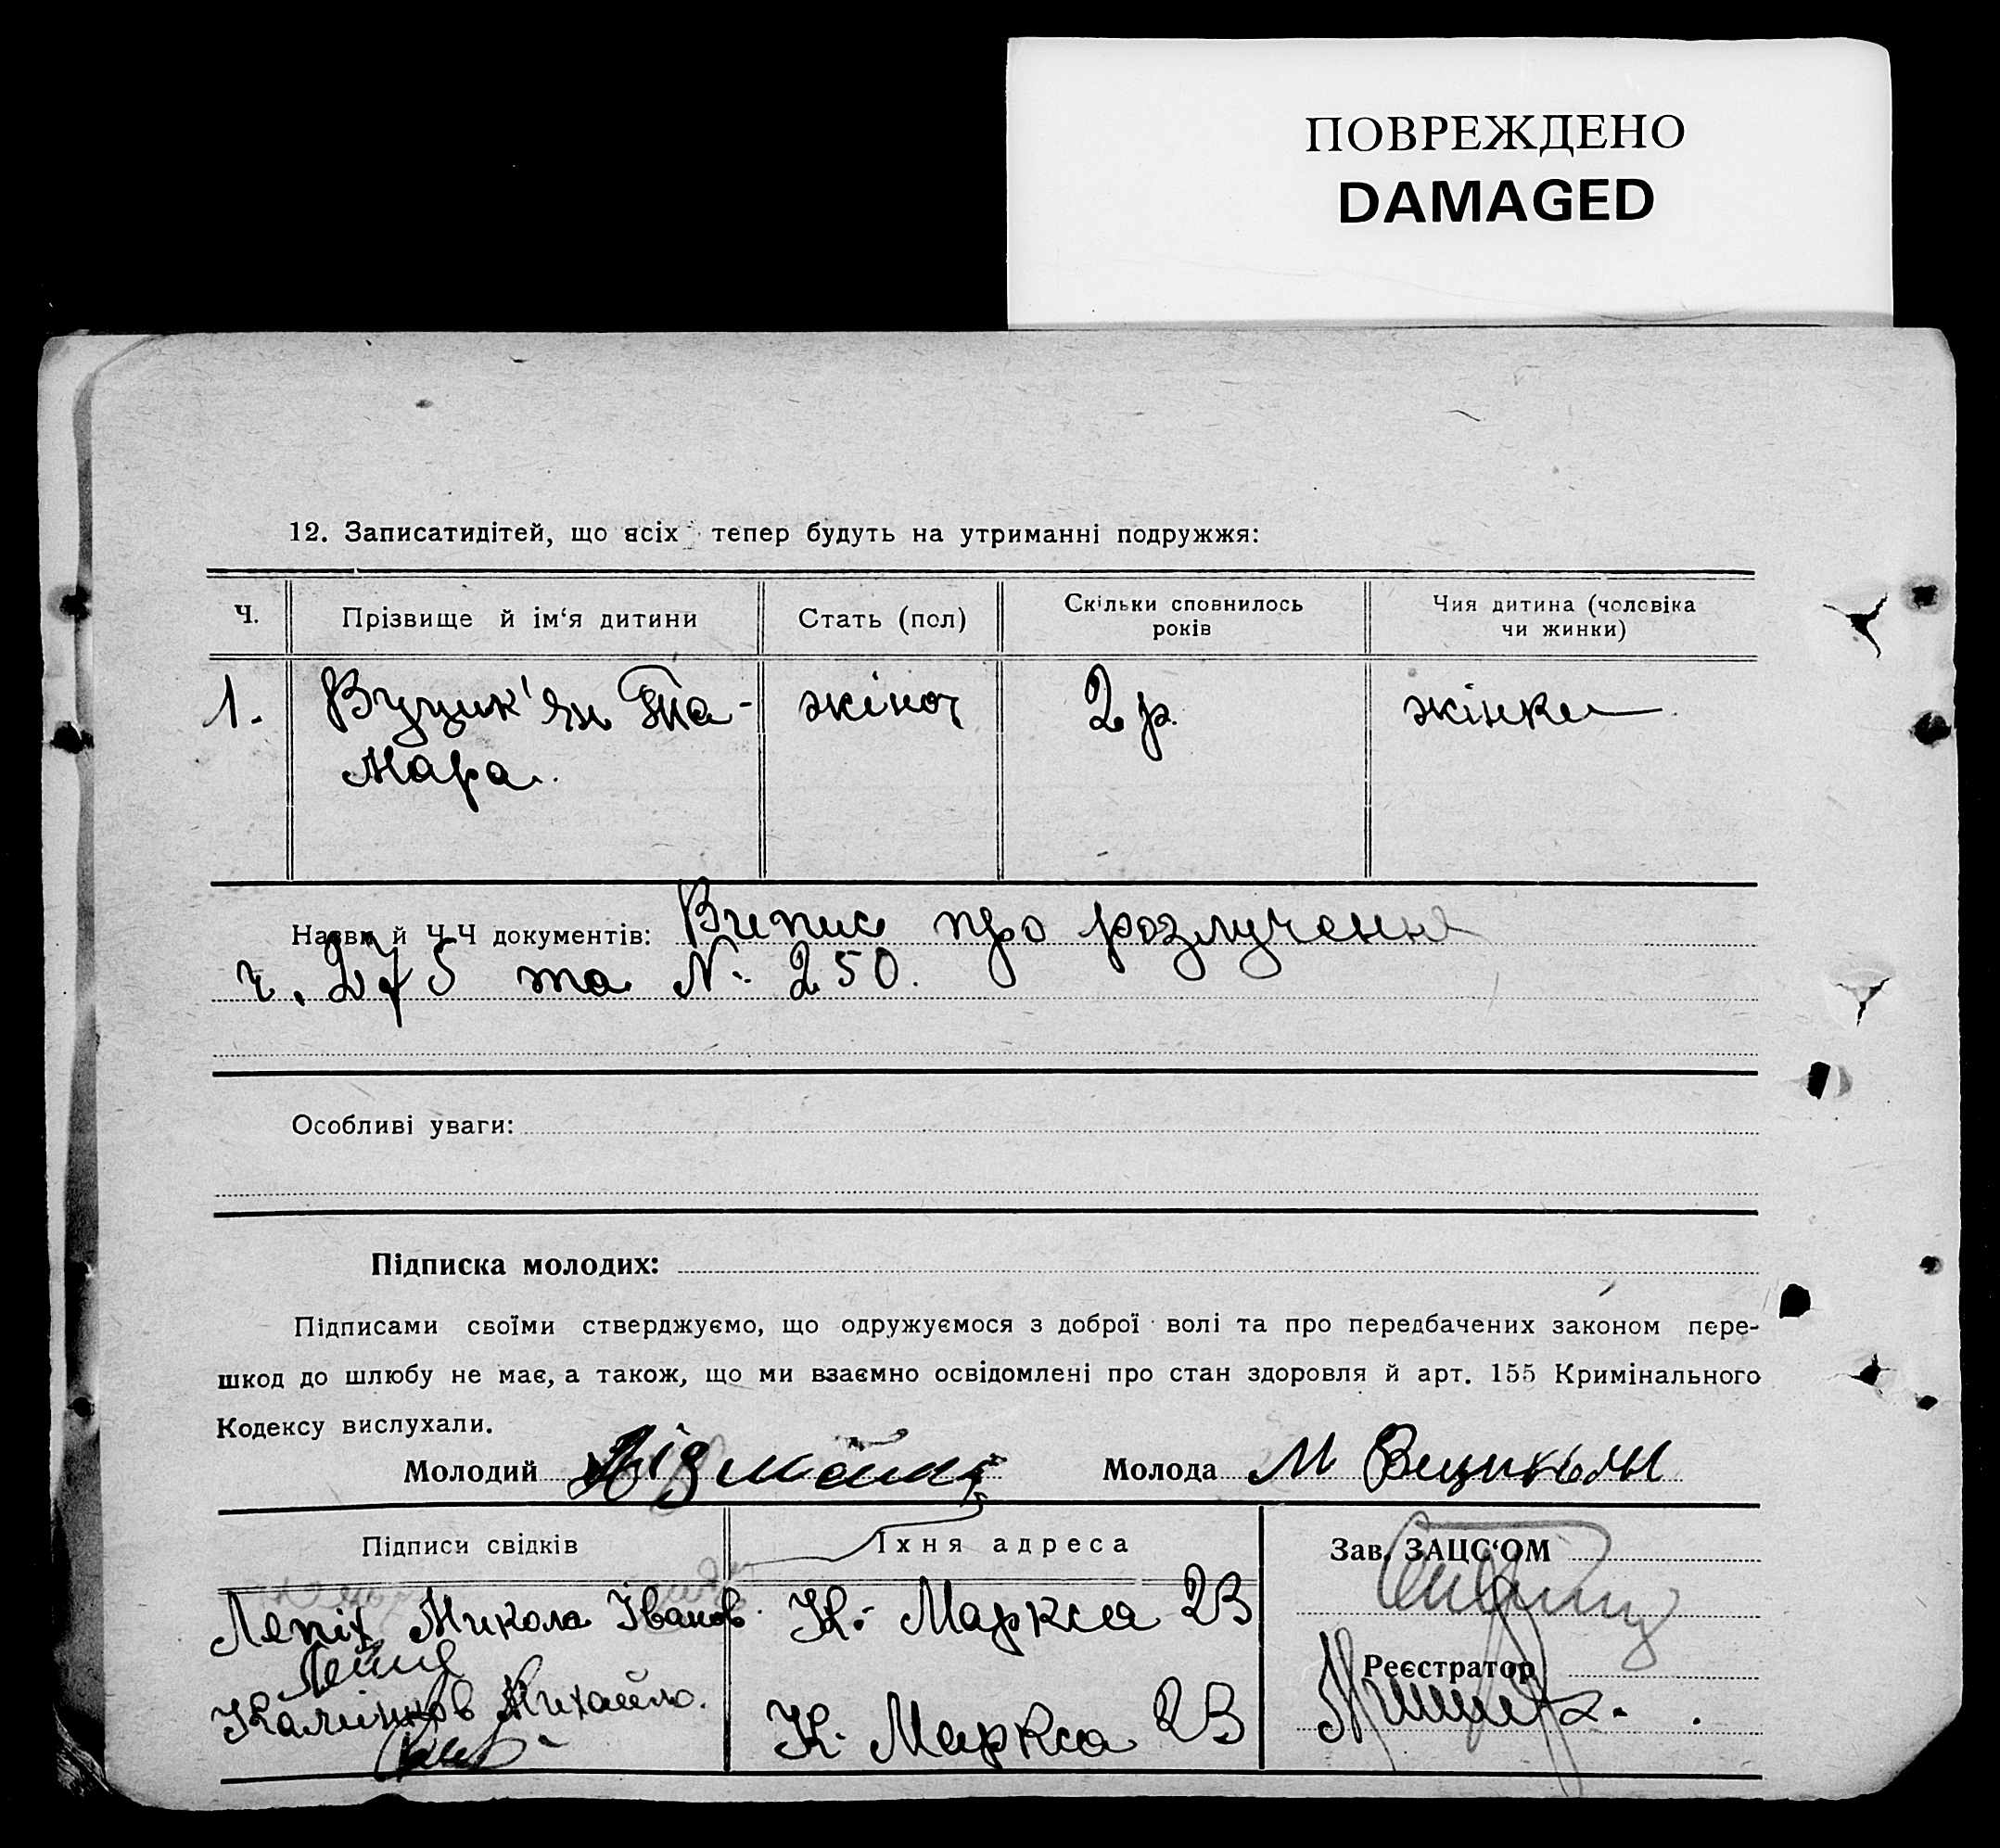 ПОВРЕЖДЕНО
DAMAGED
12. Записатидітей, що всіх тепер будуть на утриманні подружжя:
Ч. Прізвище й ім‘я дитини Стать (пол) Скільки сповнилось років Чия дитина (чоловіка чи жинки)
1. Вуцик'ян Та- жіноч 2 р. жінки
мара.
Назви й Ч.Ч документів: Випис про розлучення
ч. 275 та N. 250.
Особливі уваги:
Підписка молодих:
Підписами своїми стверджуємо, що одружуємося з доброї волі та про передбачених законом пере-
шкод до шлюбу не має, а також, що ми взаємно освідомлені про стан здоровля й арт. 155 Кримінального
Кодексу вислухали.
Молодий Молода М Вуцикьян
Підписи свідків Їхня адреса Зав. ЗАЦС‘ОМ
Лепіх Микола Іванов. К. Маркса 23
Реєстратор
Калинков Михайло. К. Маркса 23